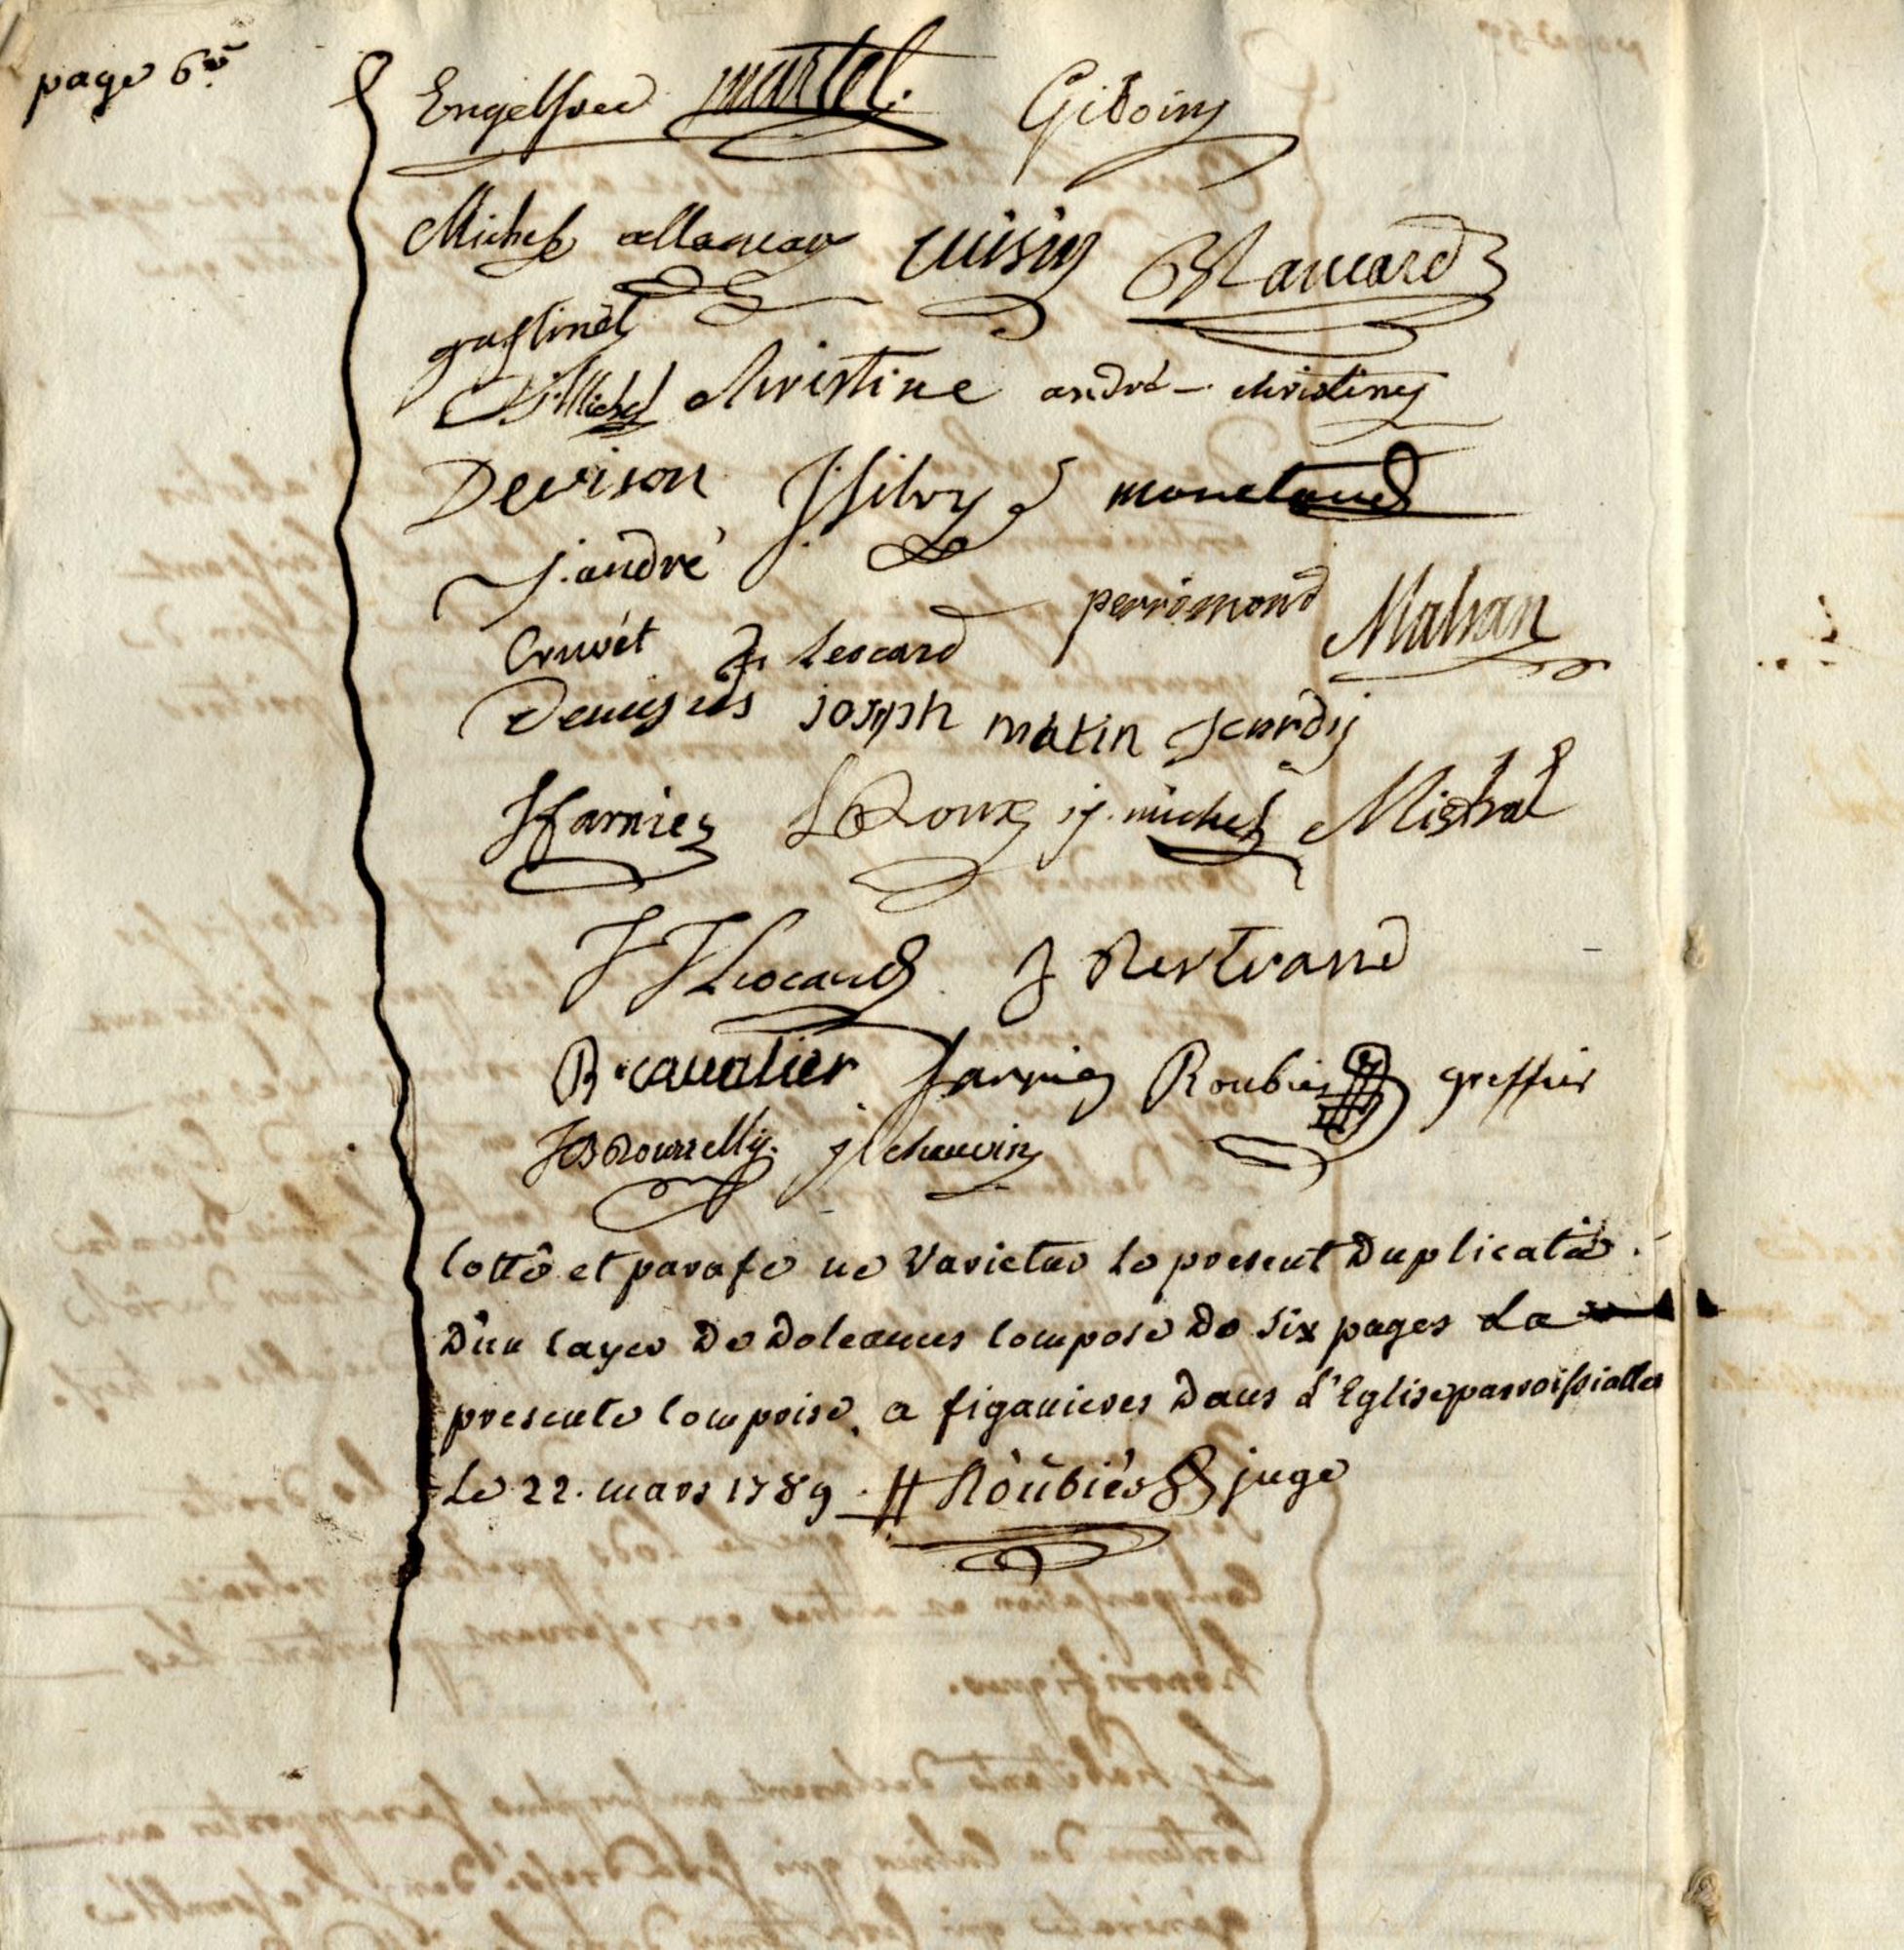 page 6e
Engelfred martel. Giboin
Michel allamay cuisin Blancard
gastinel
J Michel christine andré - christine
Devison J silvy monctaud
J. andré
perrimond Malvan
Cruvèt Jh Leocard
joseph matin jcardy
J farnier L Roux jj. michel Mistral
J J Leocard J Bertrand
B. cavalier farnie Roubie greffier
JB Bourrelly. J chauvin
Cotté et parafé ne Varietur le present Duplicata
D'un Cayer De Doleances Composé De Six pages La
presente Comprise, a figanieres Dans L'Eglise parroissialle
Le 22. mars 1789. Roubies juge